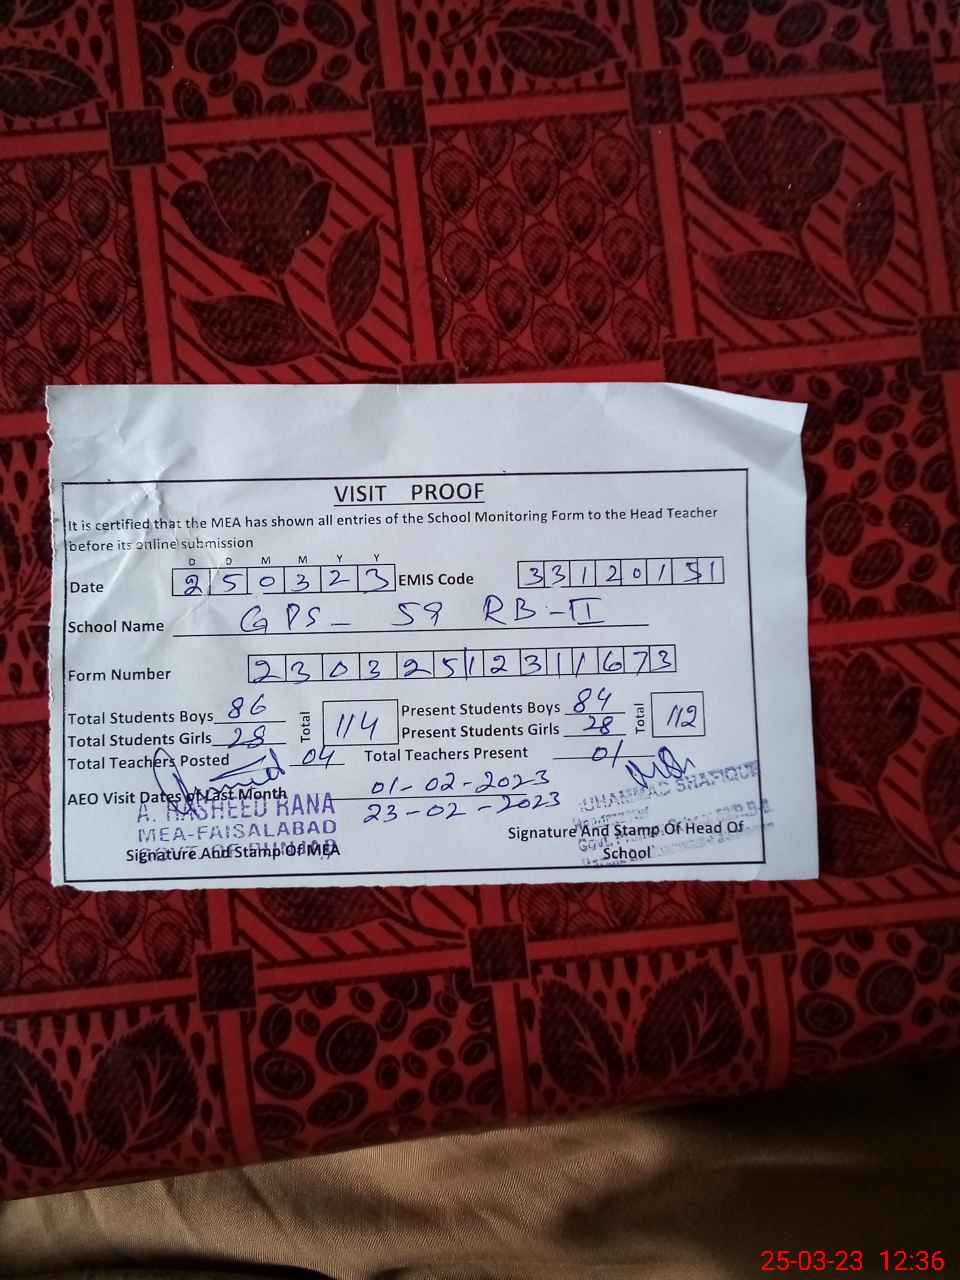 VISIT PROOF
It is certified that the MEA has shown all entries of the School Monitoring Form to the Head Teacher
before its online submission
D D M M Y Y
Date 250323 EMIS Code 33120151
School Name GPS - 59 RB-II
Form Number 23032512311673
Total Students Boys 86 Total 114 Present Students Boys 84 Total 112
Total Students Girls 28 Present Students Girls 28
Total Teachers Posted 04 Total Teachers Present 01
AEO Visit Dates of Last Month 01-02-2023
23-02-2023
A. RASHEED RANA
MEA-FAISALABAD
GOVT. OF PUNJAB
Signature And Stamp Of MEA
MUHAMMAD SHAFIQUE
Signature And Stamp Of Head Of
School
25-03-23 12:36